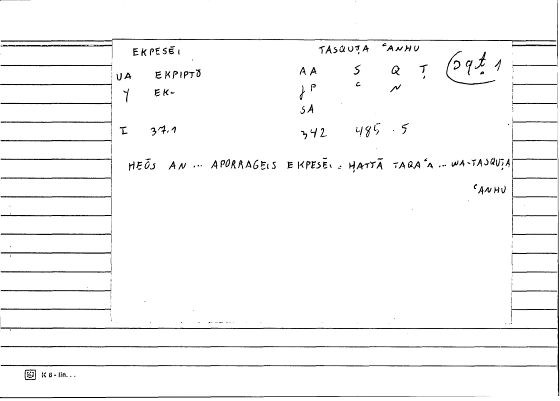 EKPESĒI TASQUṬA ʿANHU
UA EKPIPTŌ AA S Q Ṭ sqṭ 1
Y EK- P ʿ N
SA
I 37.1 342 485.5
HEŌS AN ... APORRAGEIS EKPESĒI : ḤATTĀ TAQAʿA ... WA-TASQUṬA
ʿANHU